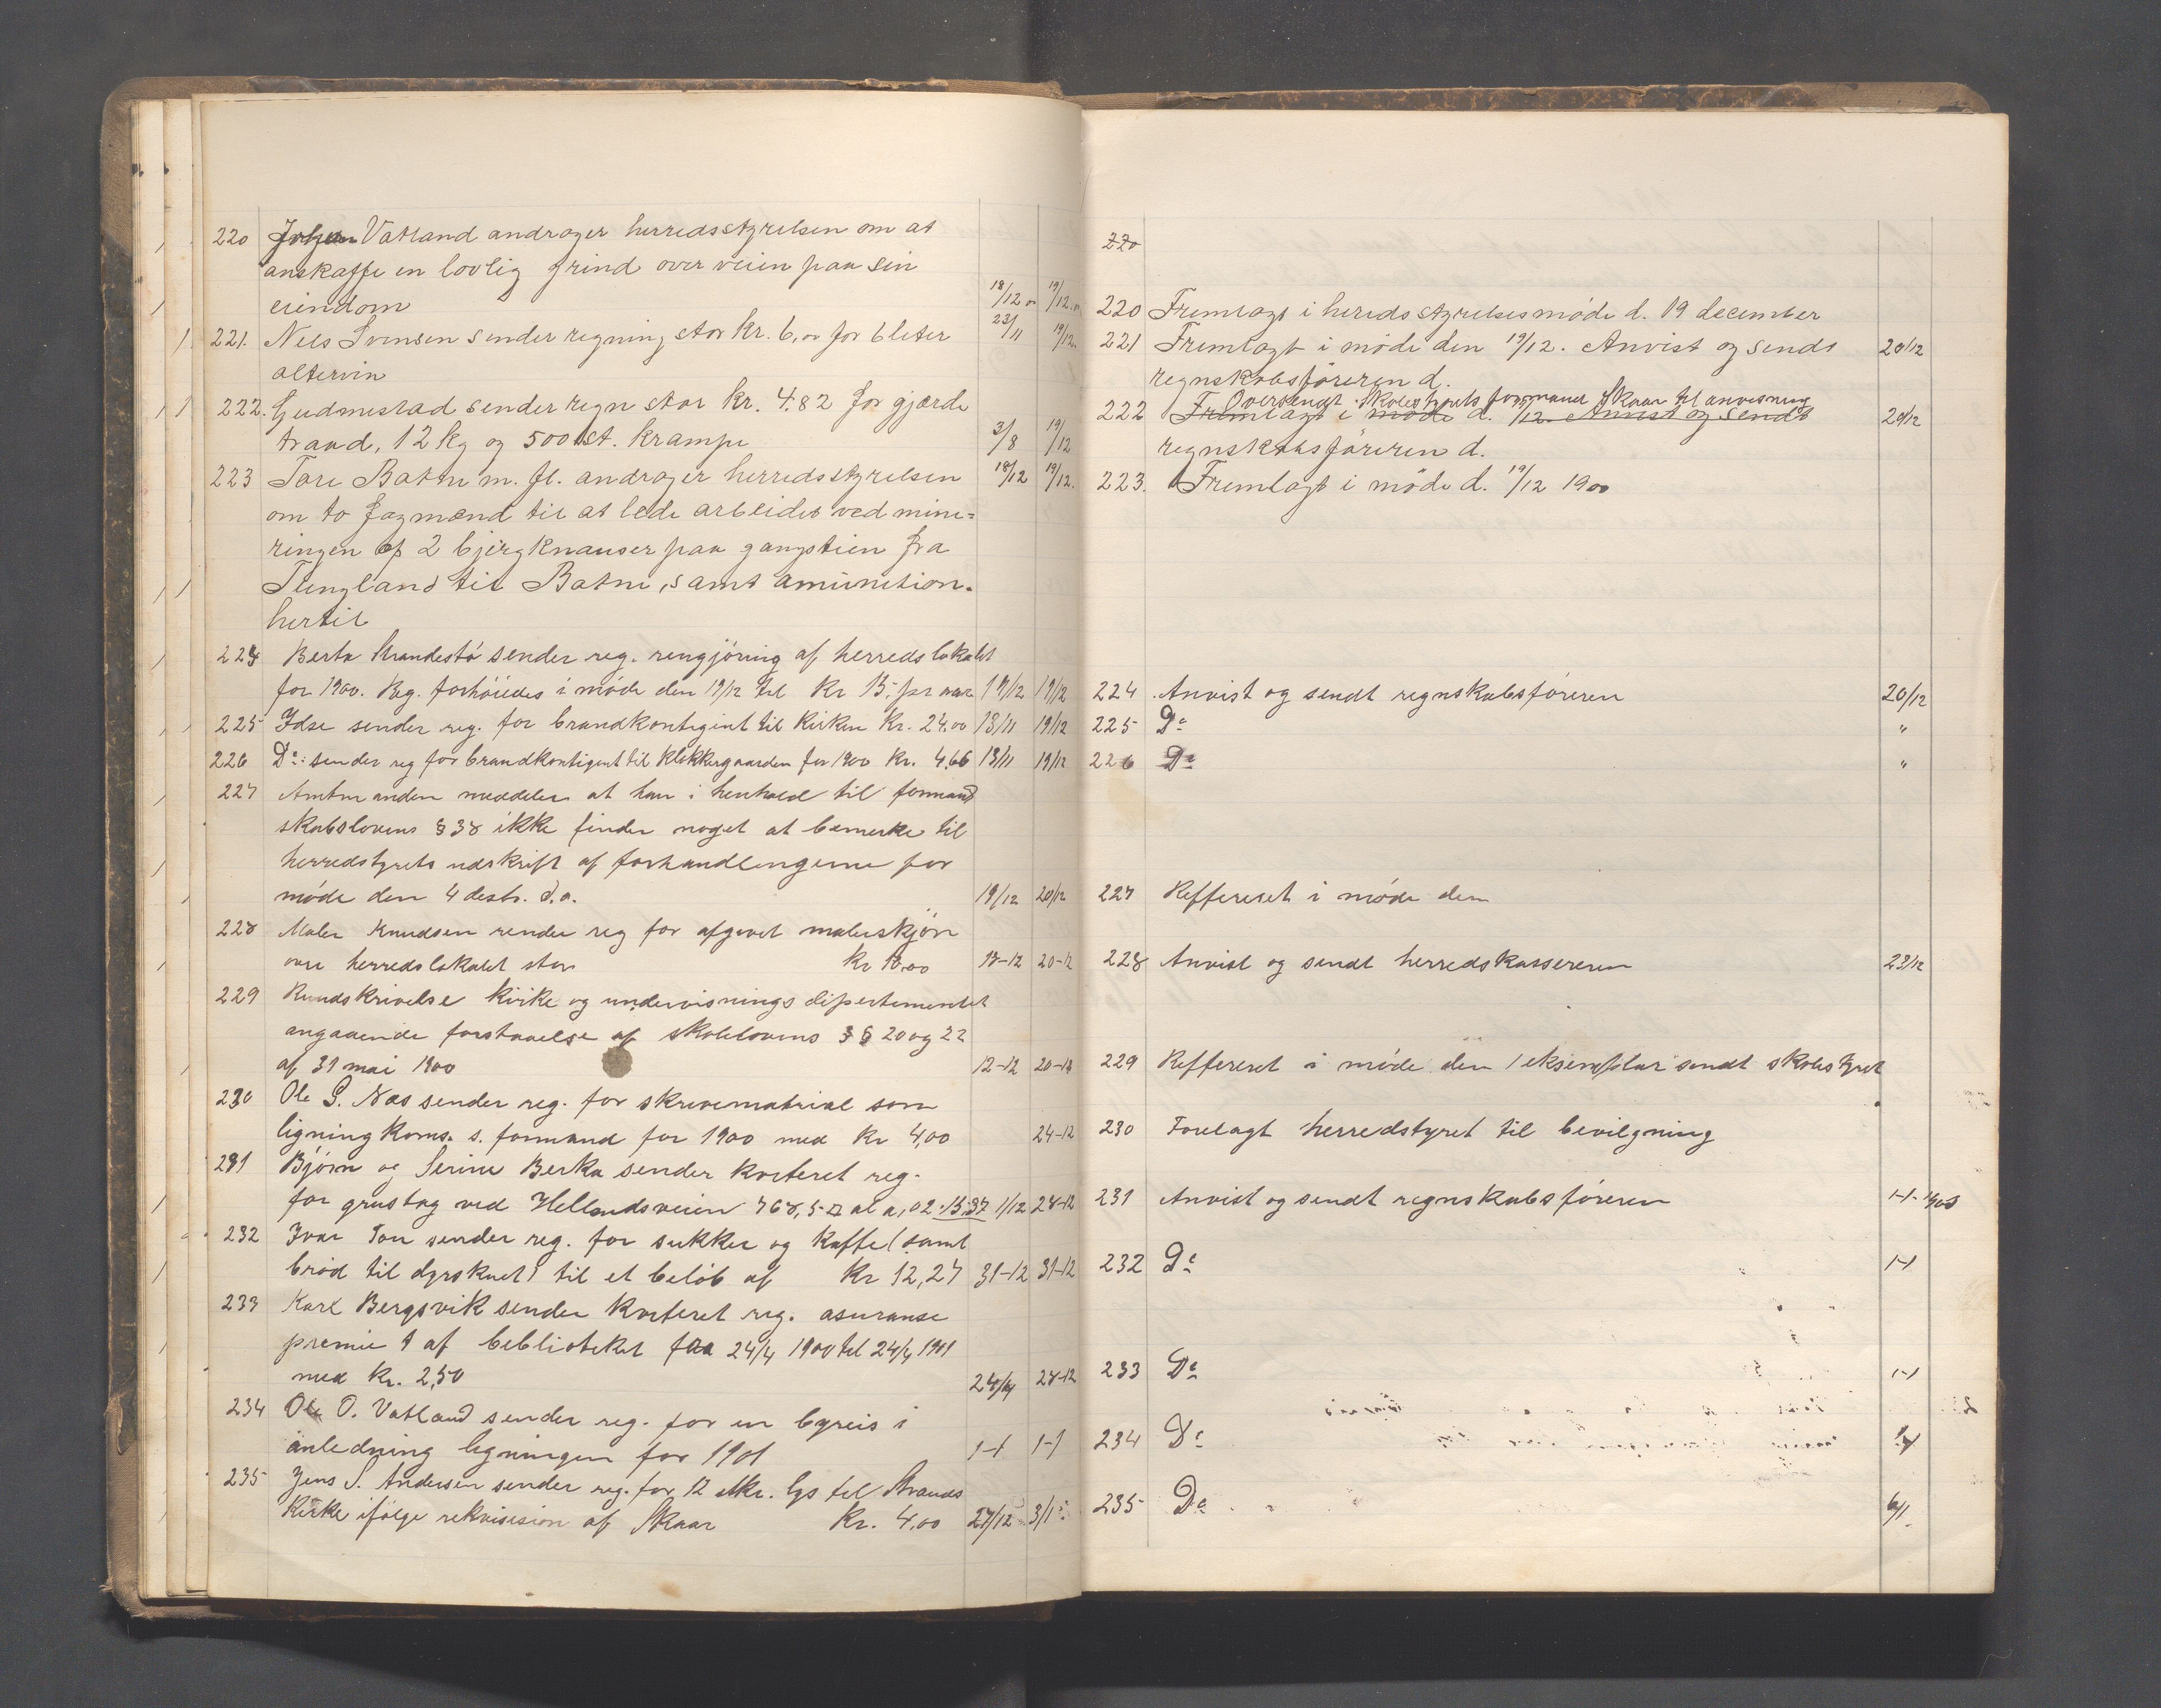 220 Johan Vatland andrager herredsstyrelsen om at
anskaffe en lovlig grind over veien paa sin
eiendom 18/12 00 19/12 00
221. Nels Svensen sender regning stor kr. 6,00 for 6 leter 23/11 19/12.
altervin
222. Gudmestad sender regn stor kr. 4.82 for gjærde
traad, 12 kg og 500 st. krampe 3/8 19/12
223 Tore Batne m. fl. andrager herredsstyrelsen 18/12 19/12.
om to fagmænd til at lede arbeidet ved mine=
ringen af 2 bjergknauser paa gangstien fra
Tlengland til Batne, samt amunition.
hertil
224 Berta Strandestö sender reg. rengjöring af herredslokalet
for 1900. Reg. forhöiedes i möde den 19/12 til kr 15,- pr aar 19/12 19/12
225 Idse sender reg. for brandkontigent til kirken kr. 24,00 13/11 19/12
226 Do: sender reg for brandkontigent til klokkergaarden for 1900 kr. 4,66 13/11 19/12
227 Amtmanden meddeler at han i henhold til formand
skabslovens § 38 ikke finder noget at bemerke til
herredstyrets udskrift af forhandlingerne for
möde den 4 desbr. d.a. 19/12 20/12
228 Maler Knudsen sender reg for afgivet malerskjön
over herredslokalet stor kr 10,00 18-12 20-12
229 Rundskrivelse kirke og undervisnings dipertementet
angaaende forstaaelse af skolelovens § § 20 og 22
af 31 mai 1900 12-12 20-12
230 Ole G. Næs sender reg. for skrivematrial som
ligning koms. s. formand for 1900 med kr 4,00 24-12
231 Björn og Serine Berka sender kviteret reg.
for grustag ved Hellandsveien 768,5 al a,02 . 15,37 1/12 28-12
232 Ivar Tou sender reg. for sukker og kaffe (samt
bröd til dyrskuet) til et belöb af kr 12,27 31-12 31-12
233 Karl Bergsvik sender kviteret reg. asuranse
premie af biblioteket fra 24/4 1900 til 24/4 1901
med kr. 2,50 24/4 28-12
234 Ole O. Vatland sender reg. for en byreis i
anledning ligningen for 1901 1-1 1-1
235 Jens S. Andersen sender reg. for 12 stkr. lys til Strands
kirke ifölge rekvisision af Skaar kr. 4,00 27/12 3/1
220
220 Fremlagt i heredsstyrelsesmöde d. 19 december
221 Fremlagt i möde den 19/12. Anvist og sendt 20/12
regnskabsföreren d.
Oversendt skolestyrets formand Skaar til anvisning
222 Fremlagt i möde d. 19/12. Anvist og sendt 20/12
regnskabsföreren d.
223. Fremlagt i möde d. 19/12 1900
224 Anvist og sendt regnskabsföreren 20/12
225 Do "
226 Do "
227 Reffereset i möde den
228 Anvist og sendt herredskassereren 23/12
229 Reffereret i möde den 1 eksemplar sendt skolestyret
230 Forelagt herredstyret til bevilgning
231 Anvist og sendt regnskabsföreren 1-1-
232 Do 1-1
233 Do 1-1
234 Do
235 Do 6/1